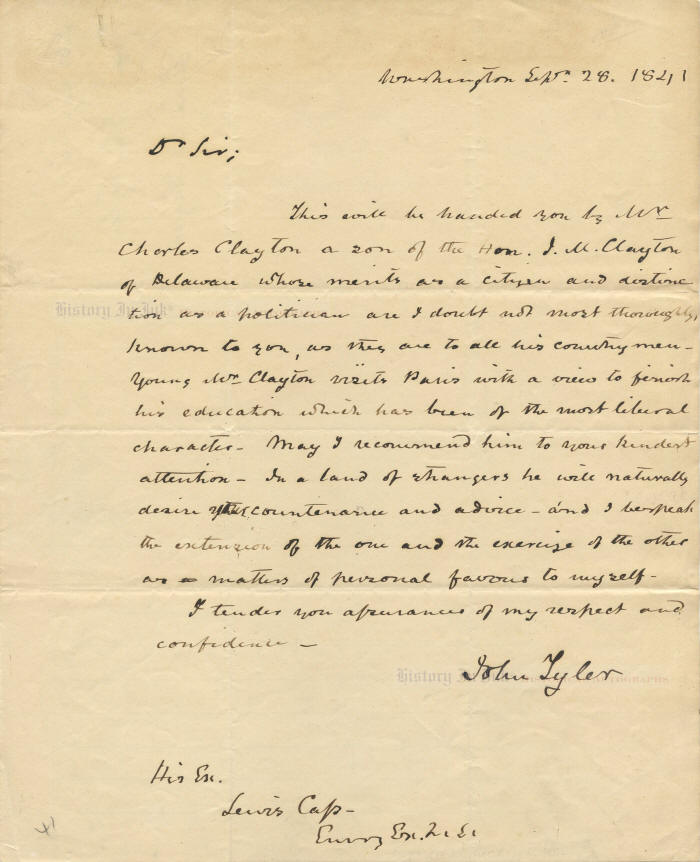 Washington Sepr. 28. 1841
Dr Sir;
This will be handed you by Mr
Charles Clayton a son of the Hon. J. M. Clayton
of Delaware whose merits as a citizen and distinc
tion as a politician are I doubt not most thoroughly
known to you, as they are to all his countrymen -
Young Mr Clayton visits Paris with a view to finish
his education which has been of the most liberal
character - May I recommend him to your kindest
attention - In a land of strangers he will naturally
desire countenance and advice - and I bespeak
the extension of the one and the exercise of the other
as matters of personal favour to myself -
I tender you assurances of my respect and
confidence -
John Tyler
History In Ink
His Ex.
Lewis Cass -
Envoy Ex.